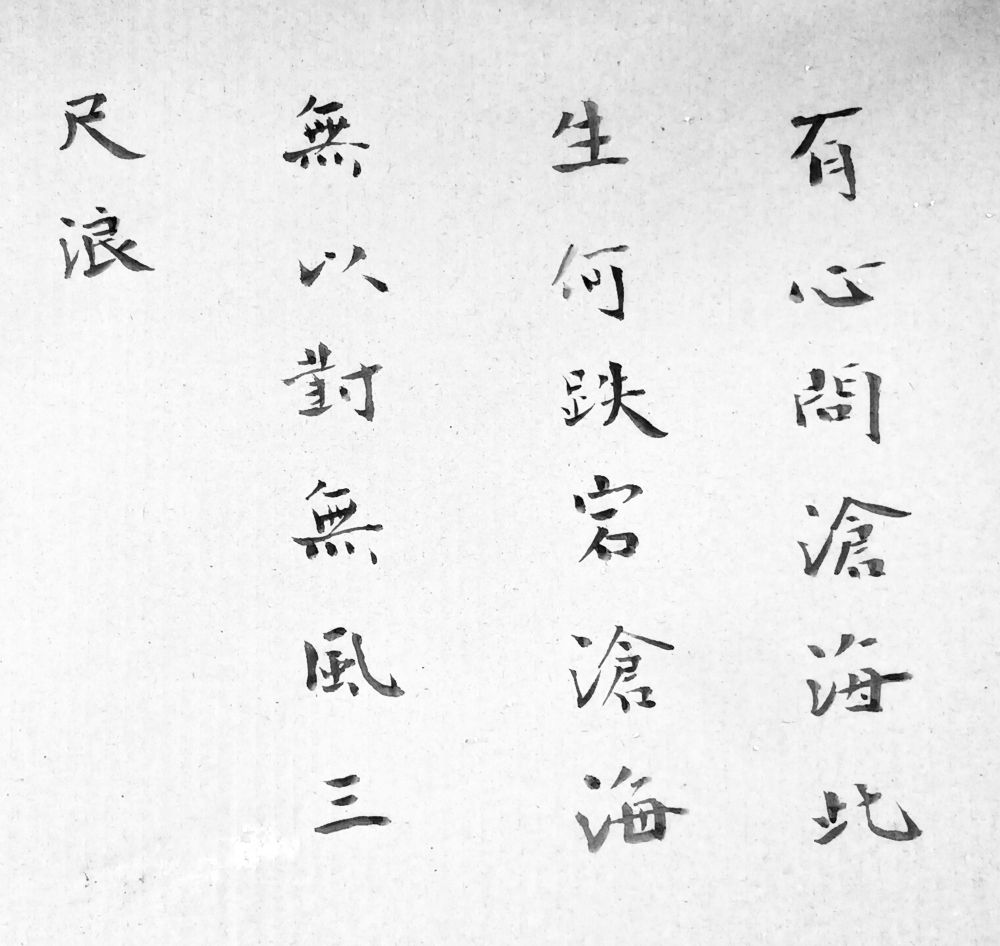 有心問滄海此
生何跌宕滄海
無以對無風三
尺浪